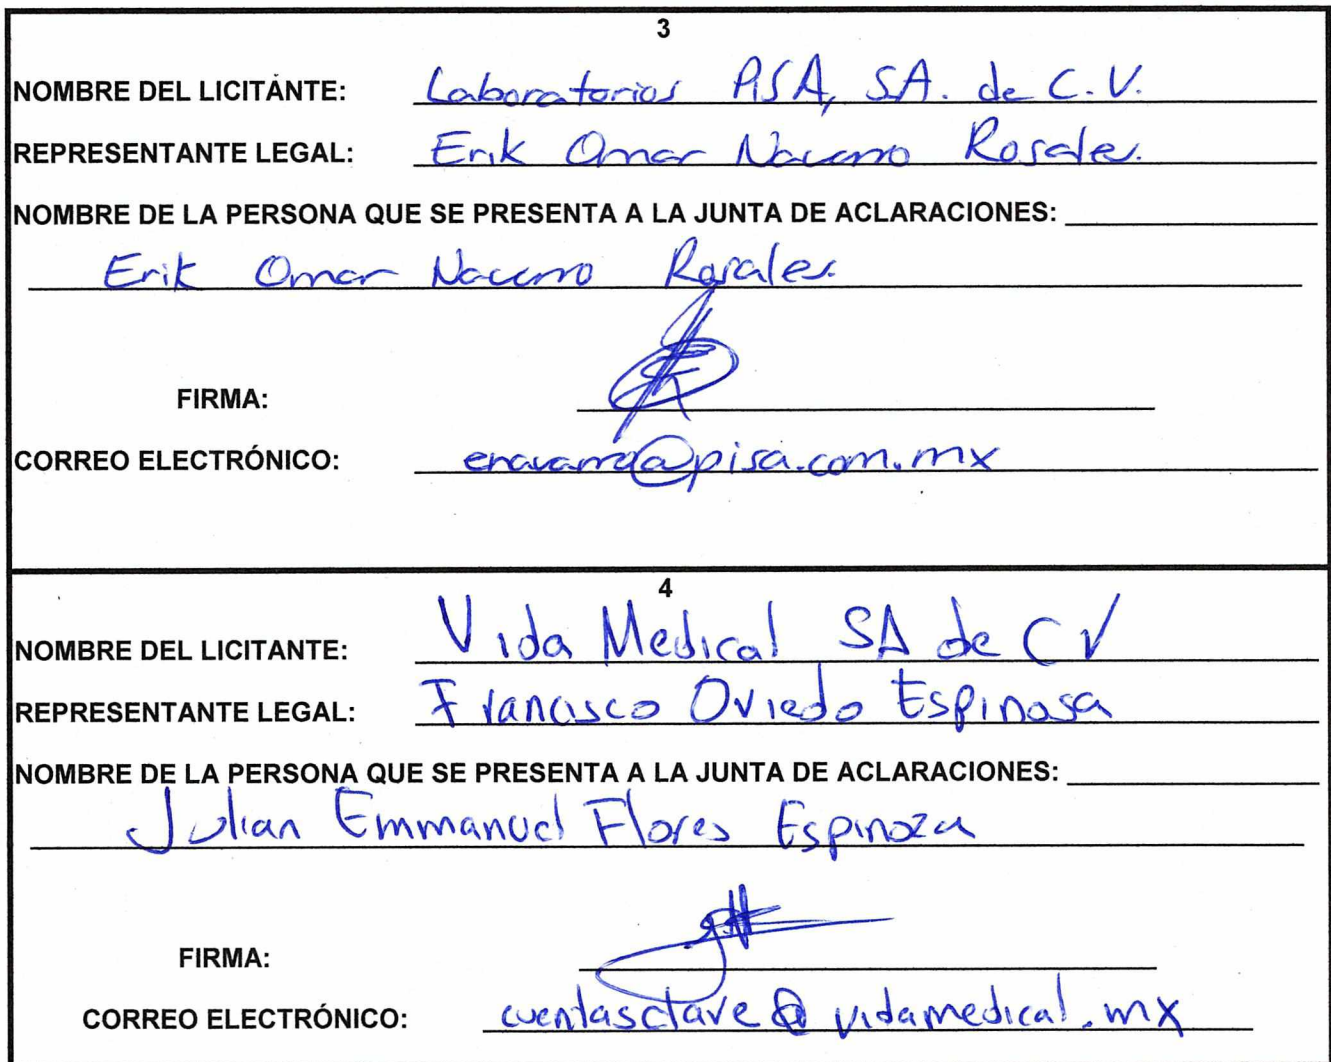 3
NOMBRE DEL LICITANTE: Laboratorios PISA, SA. de C.V.
REPRESENTANTE LEGAL: Erik Omar Navarro Rosales.
NOMBRE DE LA PERSONA QUE SE PRESENTA A LA JUNTA DE ACLARACIONES:
Erik Omar Navarro Rosales.
FIRMA:
CORREO ELECTRÓNICO: enavarro@pisa.com.mx
4
NOMBRE DEL LICITANTE: Vida Medical SA de CV
REPRESENTANTE LEGAL: Francisco Oviedo Espinosa
NOMBRE DE LA PERSONA QUE SE PRESENTA A LA JUNTA DE ACLARACIONES:
Julian Emmanuel Flores Espinoza
FIRMA:
CORREO ELECTRÓNICO: cuentasclave@vidamedical.mx